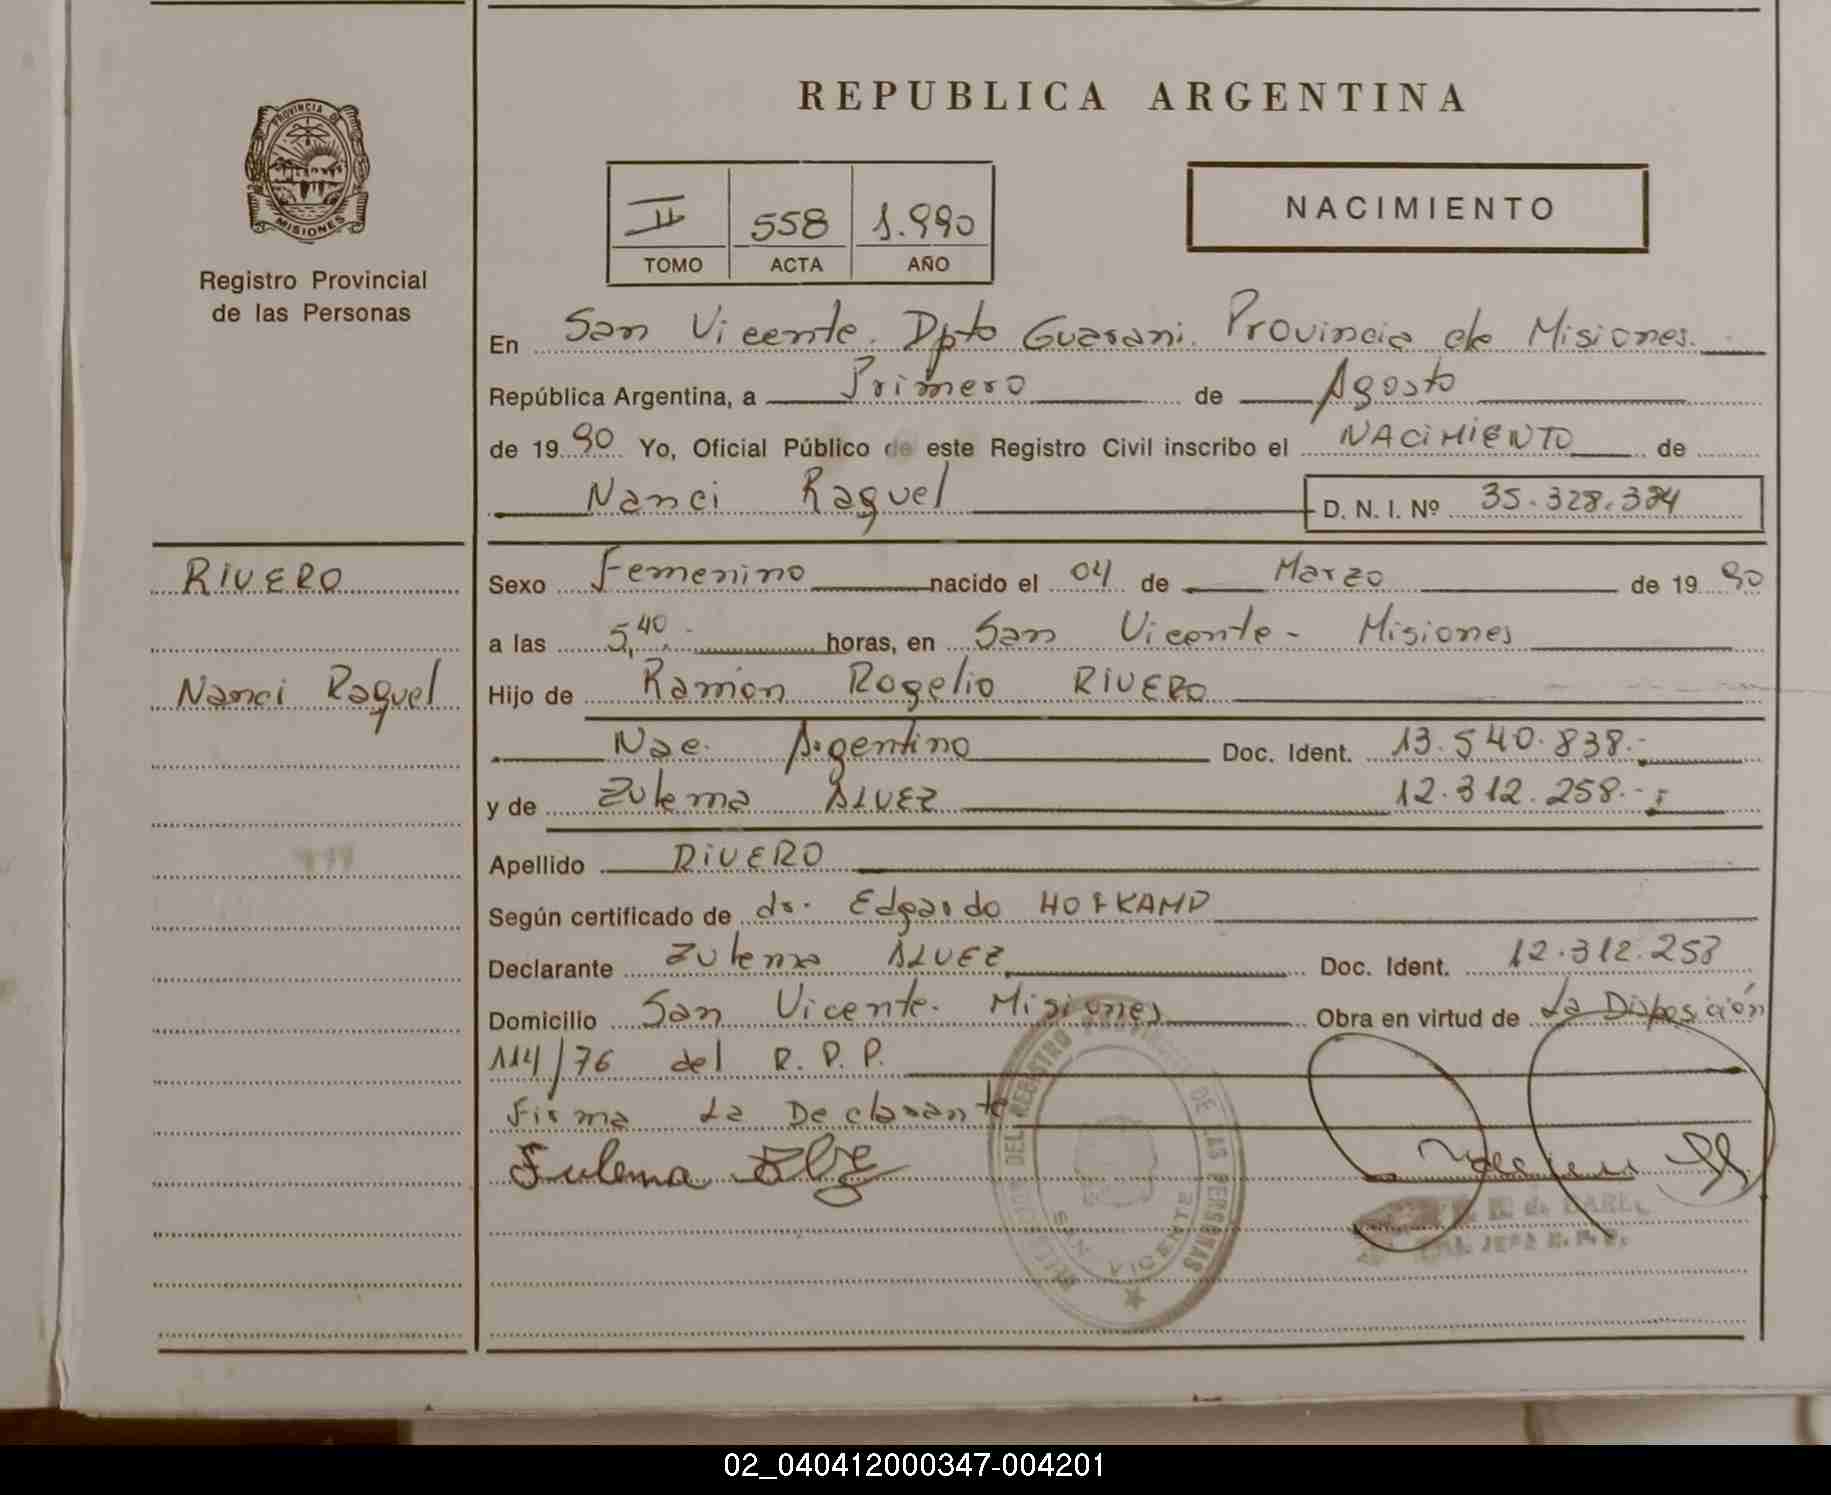 REPUBLICA ARGENTINA
PROVINCIA DE MISIONES
Registro Provincial
de las Personas
II 558 1.990
TOMO ACTA AÑO
NACIMIENTO
En San Vicente. Dpto Guarani. Provincia de Misiones.
República Argentina, a Primero de Agosto
de 19 90 Yo, Oficial Público de este Registro Civil inscribo el NACIMIENTO de
Nanci Raquel D. N. I. Nº 35.328.384
RIVERO
Nanci Raquel
Sexo Femenino nacido el 04 de Marzo de 19 90
a las 5,40 horas, en San Vicente - Misiones
Hijo de Ramón Rogelio RIVERO
Nac. Argentino Doc. Ident. 13.540.838.-
y de Zulema ALVEZ 12.312.258.-
Apellido RIVERO
Según certificado de dr. Edgardo HOFKAMP
Declarante Zulema ALVEZ Doc. Ident. 12.312.258
Domicilio San Vicente. Misiones Obra en virtud de La Disposición
114/76 del R. P. P.
Firma La Declarante
Zulema
DEL REGISTRO DE LAS PERSONAS
SAN VICENTE
02_040412000347-004201